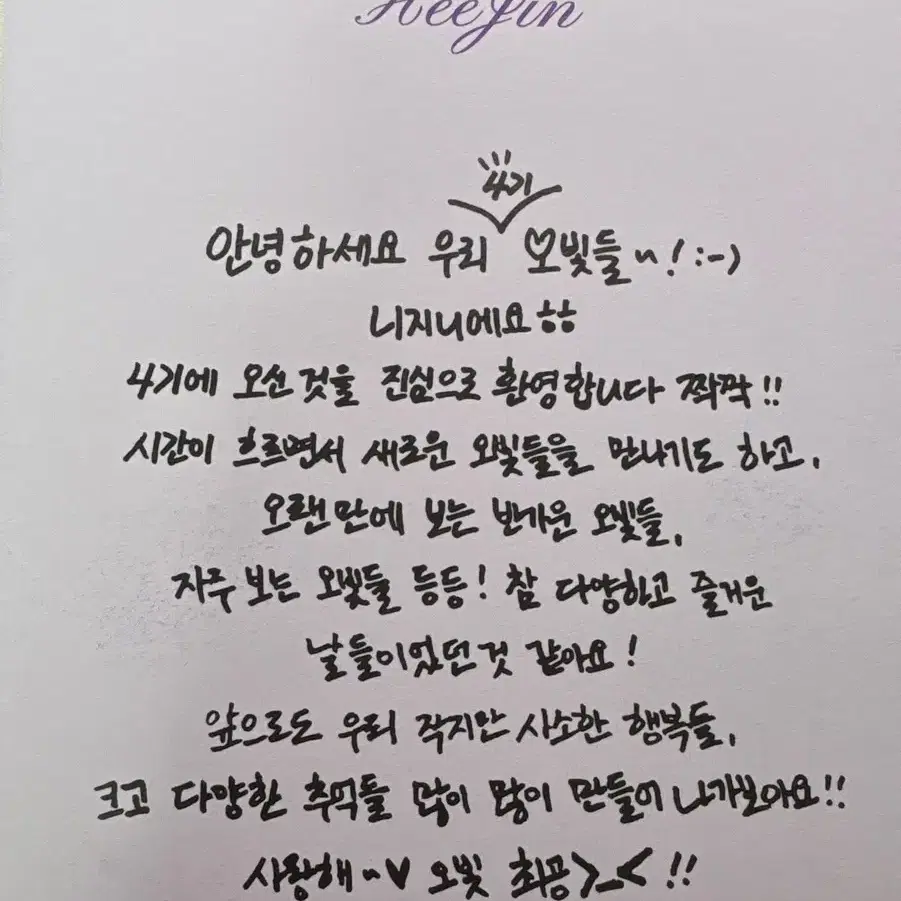 HeeJin
4기
안녕하세요 우리 ♡오빛들~! :-)
니지니에요ㅎㅎ
4기에 오신것을 진심으로 환영합니다 짝짝!!
시간이 흐르면서 새로운 오빛들을 만나기도 하고,
오랜만에 보는 반가운 오빛들,
자주 보는 오빛들 등등! 참 다양하고 즐거운
날들이었던것 같아요!
앞으로도 우리 작지만 사소한 행복들,
크고 다양한 추억들 많이 많이 만들어 나가보아요!!
사랑해~♥ 오빛 최공>_<!!